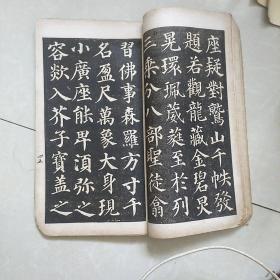 座疑對鷲山千帙發
題若觀龍藏金碧炅
晃環珮葳蕤至於列
三乘分八部聖徒翕
習佛事森羅方寸千
名盈尺萬象大身現
小廣座能卑湏弥之
容欻入芥子寶盖之